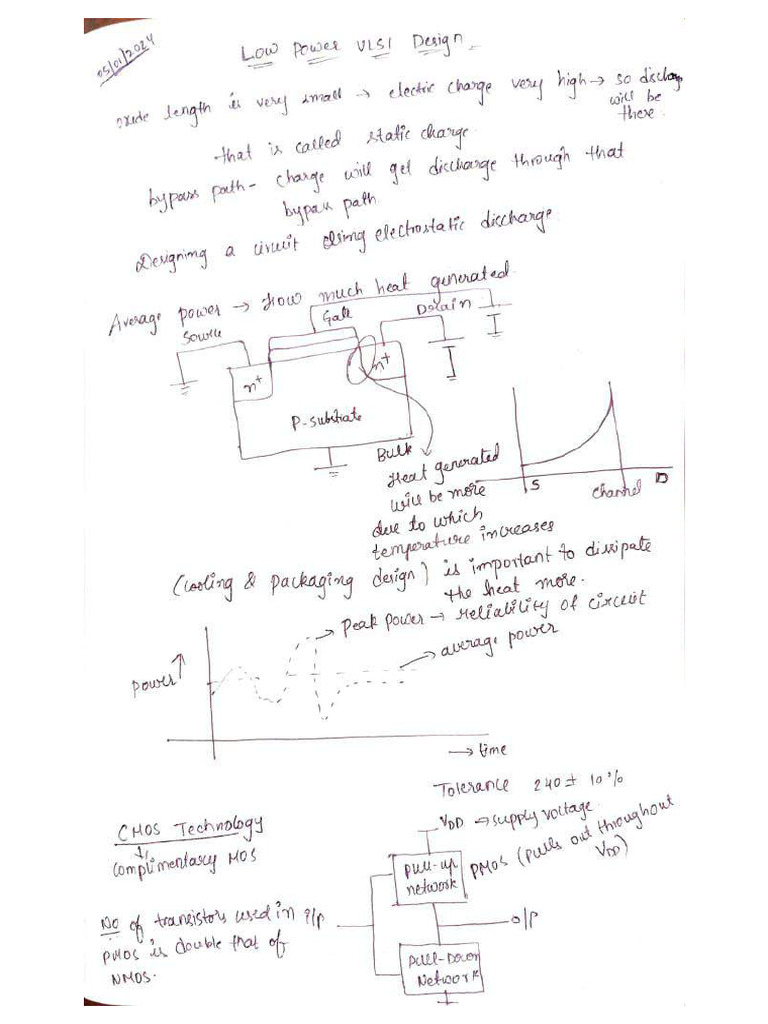 05/01/2024
Low Power VLSI Design
oxide length is very small → electric charge very high → so discharge
will be
there.
that is called static charge.
bypass path - charge will get discharge through that
bypass path
Designing a circuit using electrostatic discharge
Average power → How much heat generated.
Source
Gate
Drain
n+
n+
P-substrate
Bulk
Heat generated
will be more
due to which
temperature increases
S
channel
D
(cooling & packaging design) is important to dissipate
the heat more.
Peak power → reliability of circuit
average power
power ↑
→ time
Tolerance 240 ± 10%
CMOS Technology
complimentary MOS
VDD → supply voltage.
pull-up
network
PMOS (pulls out throughout
VDD)
No of transistors used in
PMOS is double that of
NMOS.
i/p
o/p
pull-Down
Network